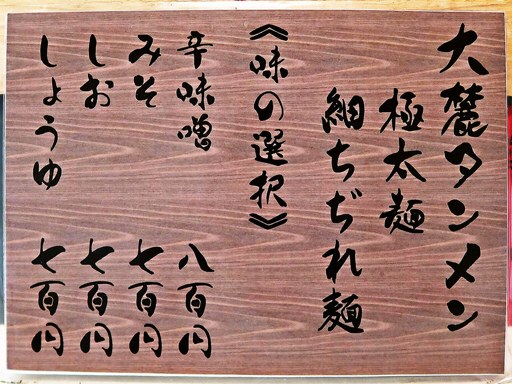 大麓タンメン
極太麺
細ちぢれ麺
《味の選択》
辛味噌 八百円
みそ 七百円
しお 七百円
しょうゆ 七百円